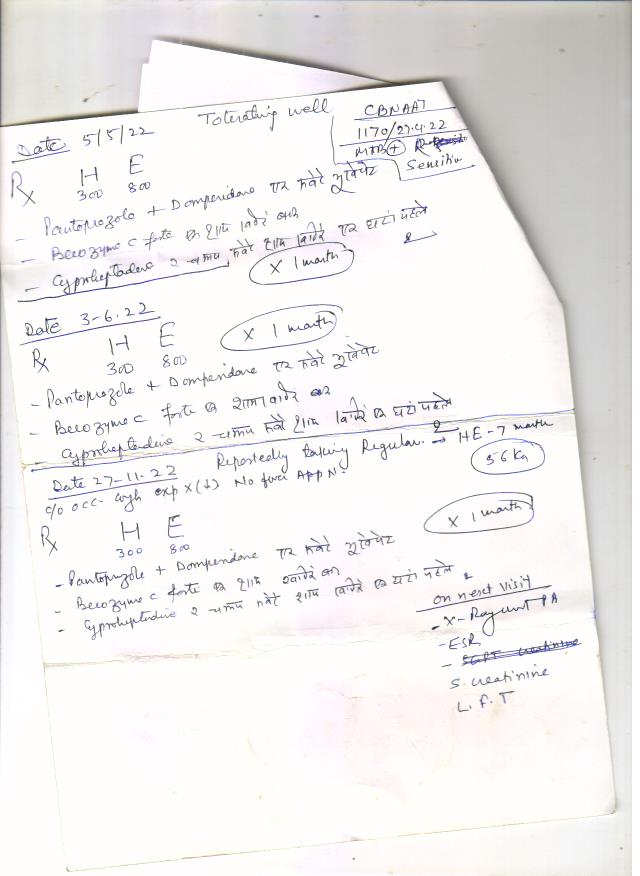 Date 5/5/22 Tolerating well
CBNAAT
1170/27.4.22
MTB (+) R
Sensitive
Rx H E
300 800
- Pantoprazole + Domperidone एक सवेरे भूखेपेट
- Becozyme C forte एक शाम
- Cyproheptadine 2 चम्मच सवेरे शाम एक घंटा पहले
X 1 month
Date 3-6.22
Rx H E X 1 month
300 800
- Pantoprazole + Domperidone एक सवेरे भूखेपेट
- Becozyme C forte एक शाम
- Cyproheptadine 2 चम्मच सवेरे शाम एक घंटा पहले
Date 27-11-22 Repeatedly taking Regular. → HE-7 month
c/o occ. cough exp X (↓) No fever APP N.
56 Kg
Rx H E X 1 month
300 800
- Pantoprazole + Domperidone एक सवेरे भूखेपेट
- Becozyme C forte एक शाम
- Cyproheptadine 2 चम्मच सवेरे शाम एक घंटा पहले
on next visit
- X-Ray PA
- ESR
- SGPT creatinine
S. creatinine
L.F.T